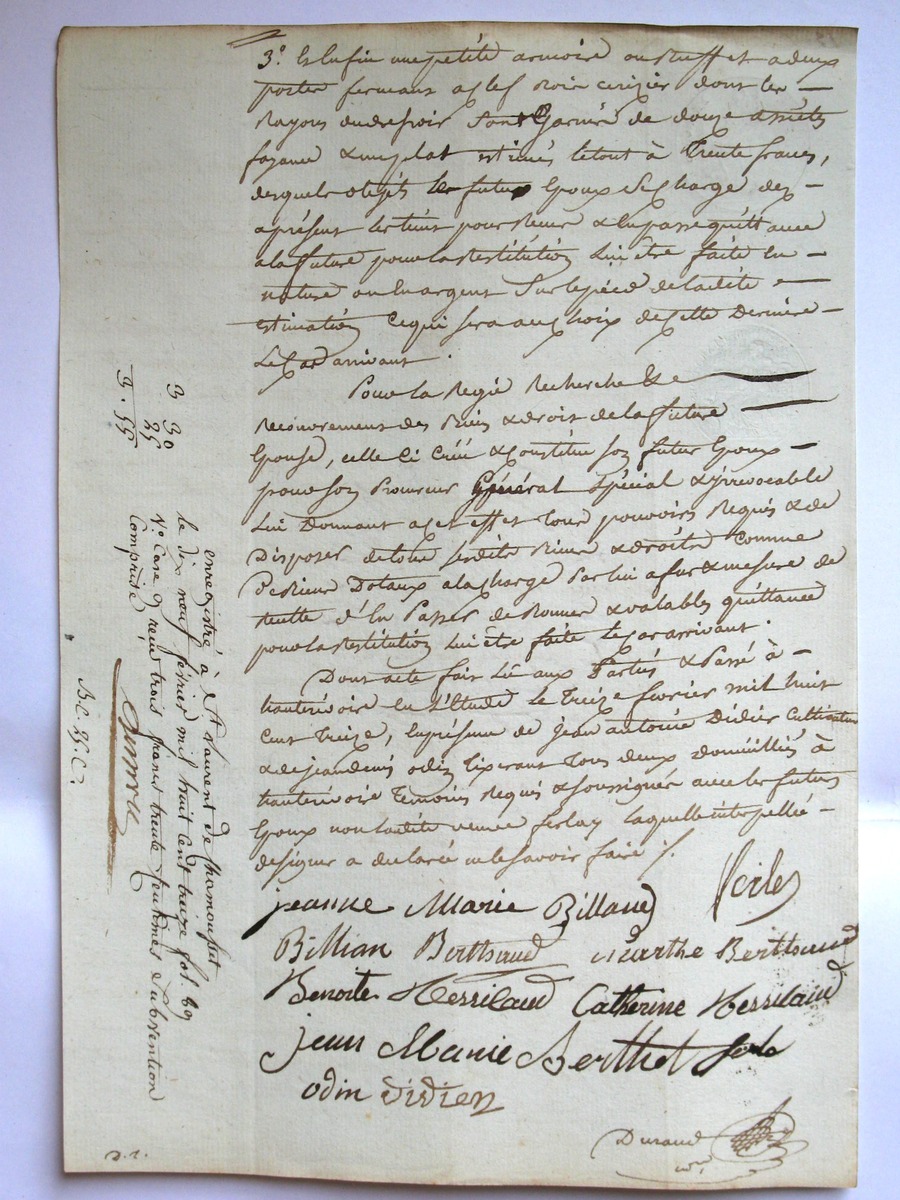 3.° Et enfin une petite armoire ou Buffet a deux
portes fermant a clef Bois cerizier dont les
Rayons du dressoir sont Garnis de douze assiettes
fayance & un plat estimés le tout à trente francs,
desquels objets le futur Epoux se charge dès
aprésent les tient pour Reçus & en passe quittance
a la future pour la restitution lui être faite en
nature ou en argent sur le pied de ladite
estimation ce qui sera au choix de cette dernière
le cas arrivant.
Pour la Regie Recherche & 
Recouvrement des Biens & droits de la future
Epouse, celle ci Créé & Constitue son futur Epoux
pour son Procureur Général Spécial & irrevocable
lui Donnant a cet effet tous pouvoirs Requis & de
Disposer de tous sesdits Biens & droits comme
De Biens Dotaux a la charge Par lui a fur & mesure de
recette d'en Passer de Bonnes & valables quittances
pour la restitution lui être faite le cas arrivant.
Dont acte fait Lû aux Parties & Passé à
hauterivoire en l'Etude le Treize fevrier mil huit
Cent Treize, en présence de jean antoine Didier Cultivateur
& de jean denis odin tixerant tous deux domiciliés à
hauterivoire Temoins Requis & soussignés avec les futurs
Epoux non ladite veuve ferlay laquelle interpellée
de signer a declaré ne le savoir faire /.
jeanne Marie Billaud
Billian Berthaud Marthe Berthaud
Benoite Catherine
jean Marie Berthet
odin Didier
Durand
nre
3
30
25
3.55
enregistré à St Laurent de Chamousset
le dix neuf fevrier mil huit cent treize fol. 89
V.° Case 9 recu trois francs trente centimes subvention
Comprise
B.C. 25.C.
D. 2.